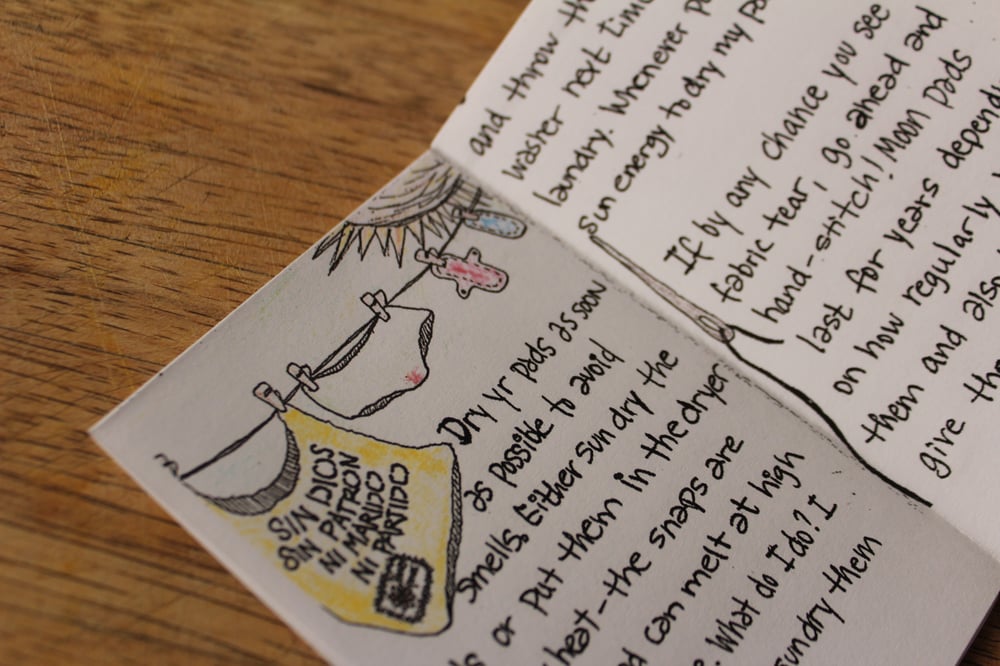 SIN DIOS
SIN PATRON
NI MARIDO
NI PARTIDO
Dry yr pads as soon
as possible to avoid
smells. Either sun dry the
or put them in the dryer
heat-the snaps are
can melt at high
What do I do? I
sundry them
and throw
washer next time
laundry. Whenever
sun energy to dry my
If by any chance you see
fabric tear, go ahead and
hand-stitch! Moon Pads
last for years
on how regularly
them and also
give